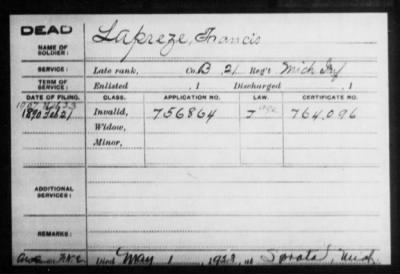 DEAD
NAME OF SOLDIER: Lapreze, Francis
SERVICE: Late rank, Co. B, 21 Reg't Mich Inf
TERM OF SERVICE: Enlisted , 1 Discharged , 1
DATE OF FILING. CLASS. APPLICATION NO. LAW. CERTIFICATE NO.
1890 Feb 21 Invalid, 756864 764,096
Widow,
Minor,
ADDITIONAL SERVICES:
REMARKS:
Died May 1, 1923, at Mich